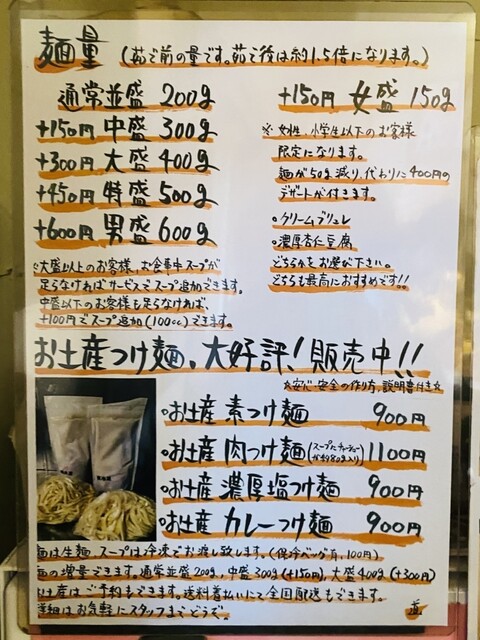 麺量(茹で前の量です。茹で後は約1.5倍になります。)
通常並盛 200g
+150円 中盛 300g
+300円 大盛 400g
+450円 特盛 500g
+600円 男盛 600g
※大盛以上のお客様、お食事中スープが
足らなければサービスでスープ追加できます。
中盛以下のお客様も足らなければ、
+100円でスープ追加(100cc)できます。
+150円 女盛 150g
※女性、小学生以下のお客様
限定になります。
麺が50g減り、代わりに400円の
デザートが付きます。
○クリームブリュレ
○濃厚杏仁豆腐
どちらかをお選び下さい。
どちらも最高におすすめです!!
お土産つけ麺、大好評!販売中!!
☆安心・安全の作り方、説明書付き☆
○お土産 素つけ麺 900円
○お土産 肉つけ麺(スープにチャーシューが約80g入り) 1100円
○お土産 濃厚塩つけ麺 900円
○お土産 カレーつけ麺 900円
麺は生麺、スープは冷凍でお渡し致します。(保冷バッグ有、100円)
麺の増量できます。通常並盛200g、中盛300g(+150円)、大盛400g(+300円)
お土産はご予約もできます。送料着払いにて全国郵送もできます。
詳細はお気軽にスタッフまでどうぞ。
道